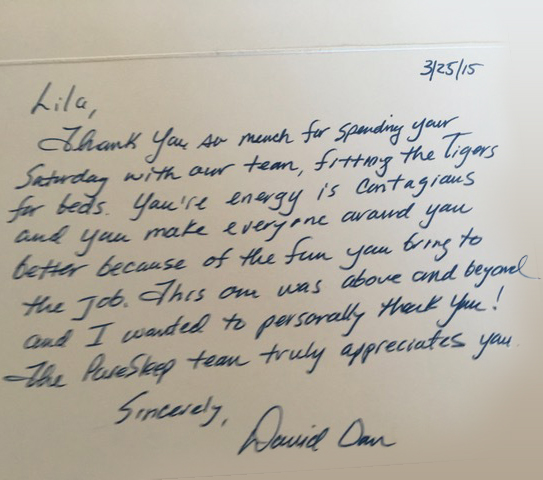 3/25/15
Lila,
Thank you so much for spending your
Saturday with our team, fitting the Tigers
for beds. You're energy is contagious
and you make everyone around you
better because of the fun you bring to
the job. This one was above and beyond
and I wanted to personally thank you!
The PureSleep team truly appreciates you.
Sincerely,
David Dan